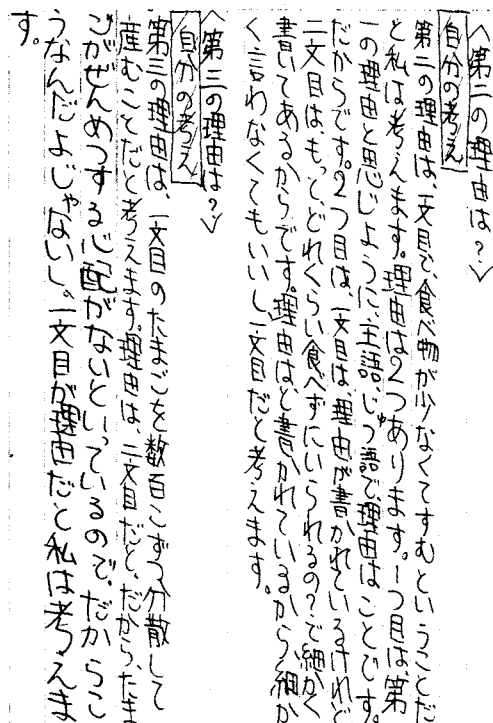 〈第二の理由は?〉
自分の考え
第二の理由は、一文目で、食べ物が少なくてすむということだ
と私は考えます。理由は2つあります。1つ目は、第
一の理由と思じように、主語、じゅつ語で、理由はことです。
だからです。2つ目は、一文目は理由が書かれているけれど
二文目は、もって、どれくらい食べずにいられるの?で細かく
書いてあるからです。理由はと書かれているから、細か
く言わなくてもいいし一文目だと考えます。
〈第三の理由は?〉
自分の考え
第三の理由は、一文目のたまごを数百こずつ分散して
産むことだと考えます。理由は、二文目だと、だから、たま
ごがぜんめつする心配がないといっているので、だからこ
うなんだよじゃないし。一文目が理由だと私は考えま
す。